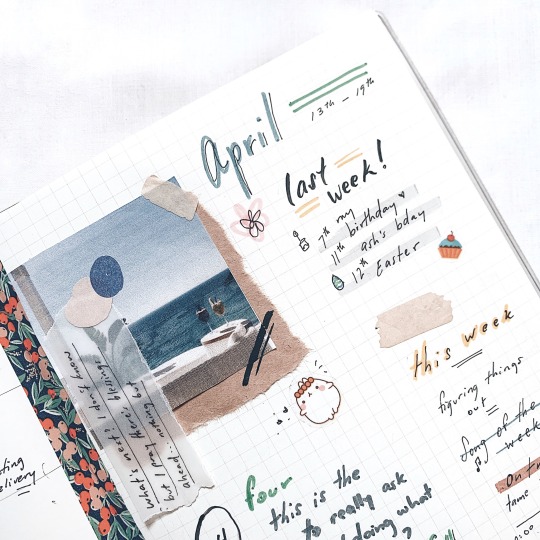 April
13th – 19th
last
week!
7th my
birthday ♥
11th ash's bday
12th Easter
this week
figuring things
out
Song of the
week
On
fame
:00
what's next? i don't know
but i feel there blessings
ahead. nothing but
four
this is the
to really ask
doing what
?
elivery!